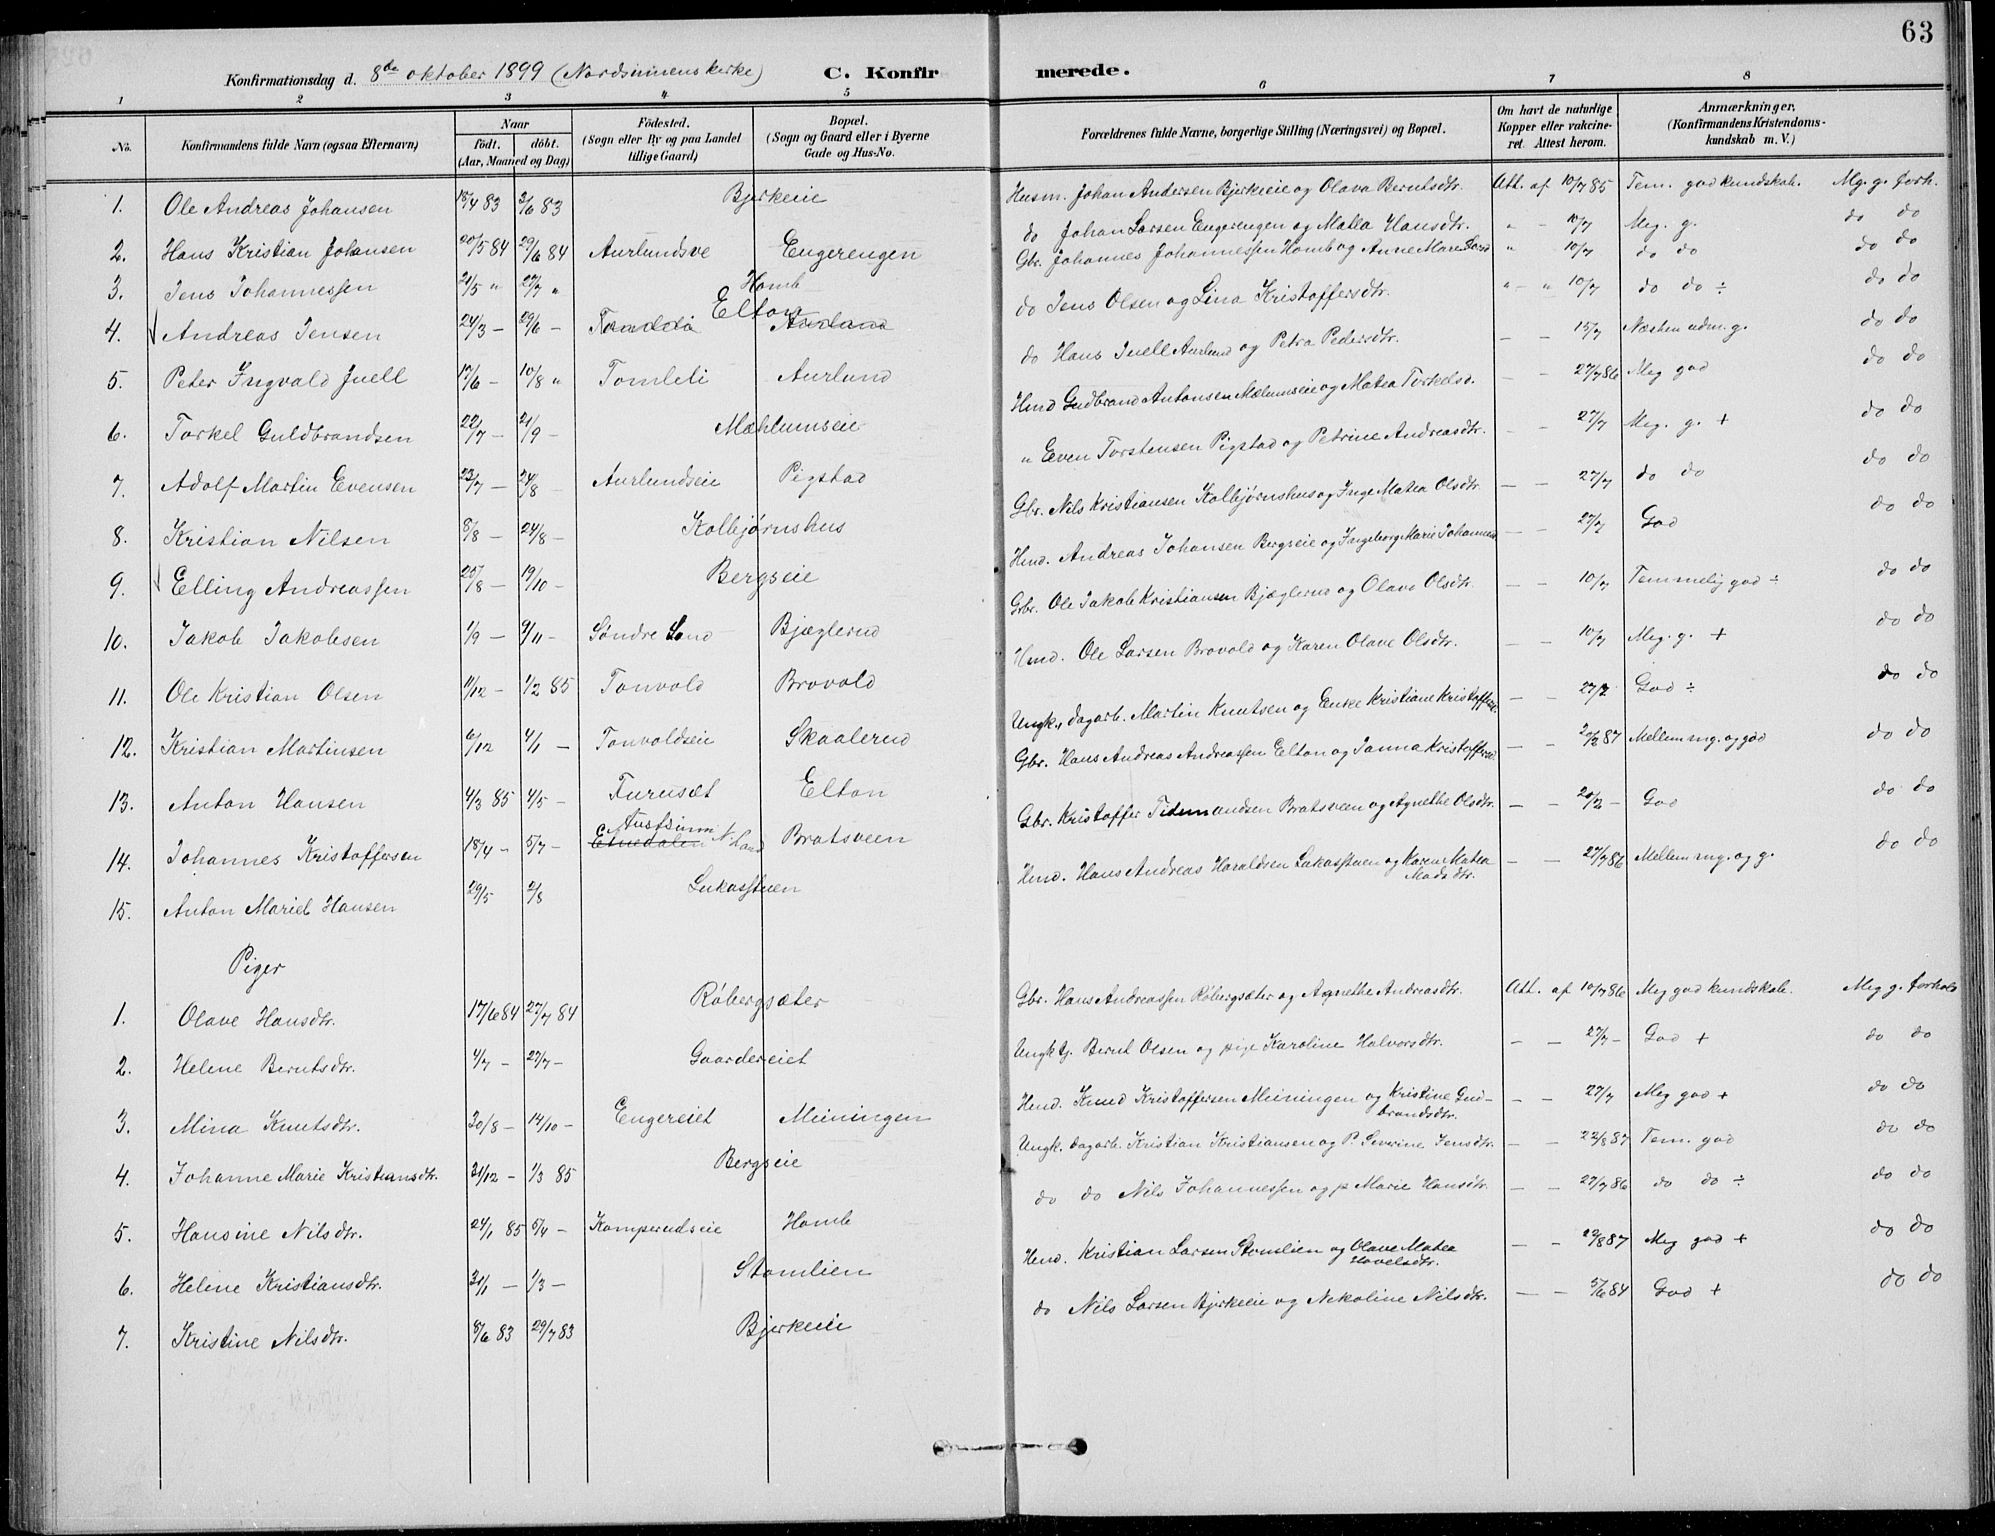 63
Konfirmationsdag d. 8de oktober 1899 (Nordsinnens kirke) C. Konfirmerede.
1 2 3 4 5 6 7 8
No. Konfirmandens fulde Navn (ogsaa Efternavn) Naar født. døbt. (Aar, Maaned og Dag) Fødested. (Sogn eller By og paa Landet tillige Gaard) Bopæl. (Sogn og Gaard eller i Byerne Gade og Hus-No. Forældrenes fulde Navne, borgerlige Stilling (Næringsvei) og Bopæl. Om havt de naturlige Kopper eller vakcineret. Attest herom. Anmærkninger. (Konfirmandens Kristendomskundskab m. V.)
1. Ole Andreas Johansen 15/4 83 3/6 83 Bjerkeie Husm. Johan Andersen Bjerkeeie og Olava Berntsdtr. Att. af 10/7 85 Tem. god kundskab. Mg. g. forh.
2. Hans Kristian Johansen 20/5 84 29/6 84 Aurlundsve Engerengen do Johan Larsen Engerengen og Mattea Hansdtr. " - 10/7 Meg. g. do do
3. Jens Johannessen 21/5 " 27/7 " Homb Gbr. Johannes Johannessen Homb og Anne Marie Larsd " 10/7 do do do do
4. Andreas Jensen 24/3 - 29/6 - Tandda Elton Aurland do Jens Olsen og Lina Kristoffersdtr. " - " 10/7 do do ÷ do do
5. Peter Ingvald Juell 17/6 - 10/8 " Tomleti Aurlund do Hans Juell Aurlund og Petra Pedersdtr. - - 15/7 Næsten udm. g. do do
6. Torkel Guldbrandsen 22/7 - 21/9 - Mæhlumseie Hmd Gudbrand Antonsen Mælumseie og Matea Torkelsd. - - 27/7 86 Meg god do do
7. Adolf Martin Evensen 23/7 - 24/8 - Aurlundseie Pigstad " Even Torstensen Pigstad og Petrine Andreasdtr. - - 27/7 Meg. g. + do do
8. Kristian Nilsen 8/8 - 24/8 - Kolbjørnshus Gbr. Nils Kristiansen Kolbjørnshus og Inge Matea Olsdtr. - - 27/7 do do do do
9. Elling Andreassen 25/8 - 19/10 - Bergseie Hmd. Andreas Johansen Bergseie og Ingeborg Marie Johannesd - - 27/7 God do do
10. Jakob Jakobsen 1/9 - 9/11 - Søndre Land Bjæglerud Gbr. Ole Jakob Kristiansen Bjæglerud og Olava Olsdtr. - - 10/7 Temmelig god ÷ do do
11. Ole Kristian Olsen 11/12 - 1/2 85 Tonvold Brovold Hmd. Ole Larsen Brovold og Karen Olave Olsdtr. - - 10/7 Meg. g. + do do
12. Kristian Martinsen 6/12 4/1 - Tonvoldseie Skaalerud Ungk., dagarb. Martin Knutsen og Enke Kristiane Kristoffersd. - - 27/7 God ÷ do do
13. Anton Hansen 4/3 85 4/5 - Furuset Elton Gbr. Hans Andreas Andreassen Elton og Janna Kristoffersd. - - 20/2 87 Mellem mg. og god do do
14. Johannes Kristoffersen 18/4 - 5/7 - Etnedalen N. Land Bratsveen Gbr. Kristoffer Tidemandsen Bratsveen og Agnethe Olsdtr. - - 20/2 - God do do
15. Anton Mariel Hansen 29/5 2/8 Lukasstuen Hmd. Hans Andreas Haraldsen Lukasstuen og Karen Matea Madsdtr. - - 27/7 86 Mellem mg. og g. do do
Piger
1. Olave Hansdtr. 17/6 84 27/7 84 Røbergsæter Gbr. Hans Andreassen Røbergsæter og Agnethe Andreasdtr. Att. af 10/7 86 Meg god kundskab. Meg g. forhold
2. Helene Berntsdtr. 4/7 - 27/7 - Gaardereiet Ungk tj. Bernt Olsen og pige Karoline Halvorsdtr. - - 27/7 - God + do do
3. Mina Knutsdtr. 30/8 - 14/10 - Engereiet Meiningen Hmd. Knud Kristoffersen Meiningen og Kristine Gudbrandsdtr. - - 27/7 Meg god + do do
4. Johanne Marie Kristiansdtr. 31/12 - 1/3 85 Bergseie Ungk. dagarb. Kristian Kristiansen og P. Severine Jensdtr. - - 22/8 87 Tem. god do do
5. Hansine Nilsdtr. 24/1 85 5/4 - Kamperudseie Homb do do Nils Johannessen og p Marie Hansdtr. - - 27/7 86 do do ÷ do do
6. Helene Kristiansdtr. 31/1 - 1/3 - Stomlien Hmd. Kristian Larsen Stomlien og Olave Matea Hovelsdtr. - - 29/8 87 Meg god + do do
7. Kristine Nilsdtr. 8/6 83 29/7 83 Bjerkeie do Nils Larsen Bjerkeie og Nekoline Nilsdtr. - - 5/6 84 God + do do